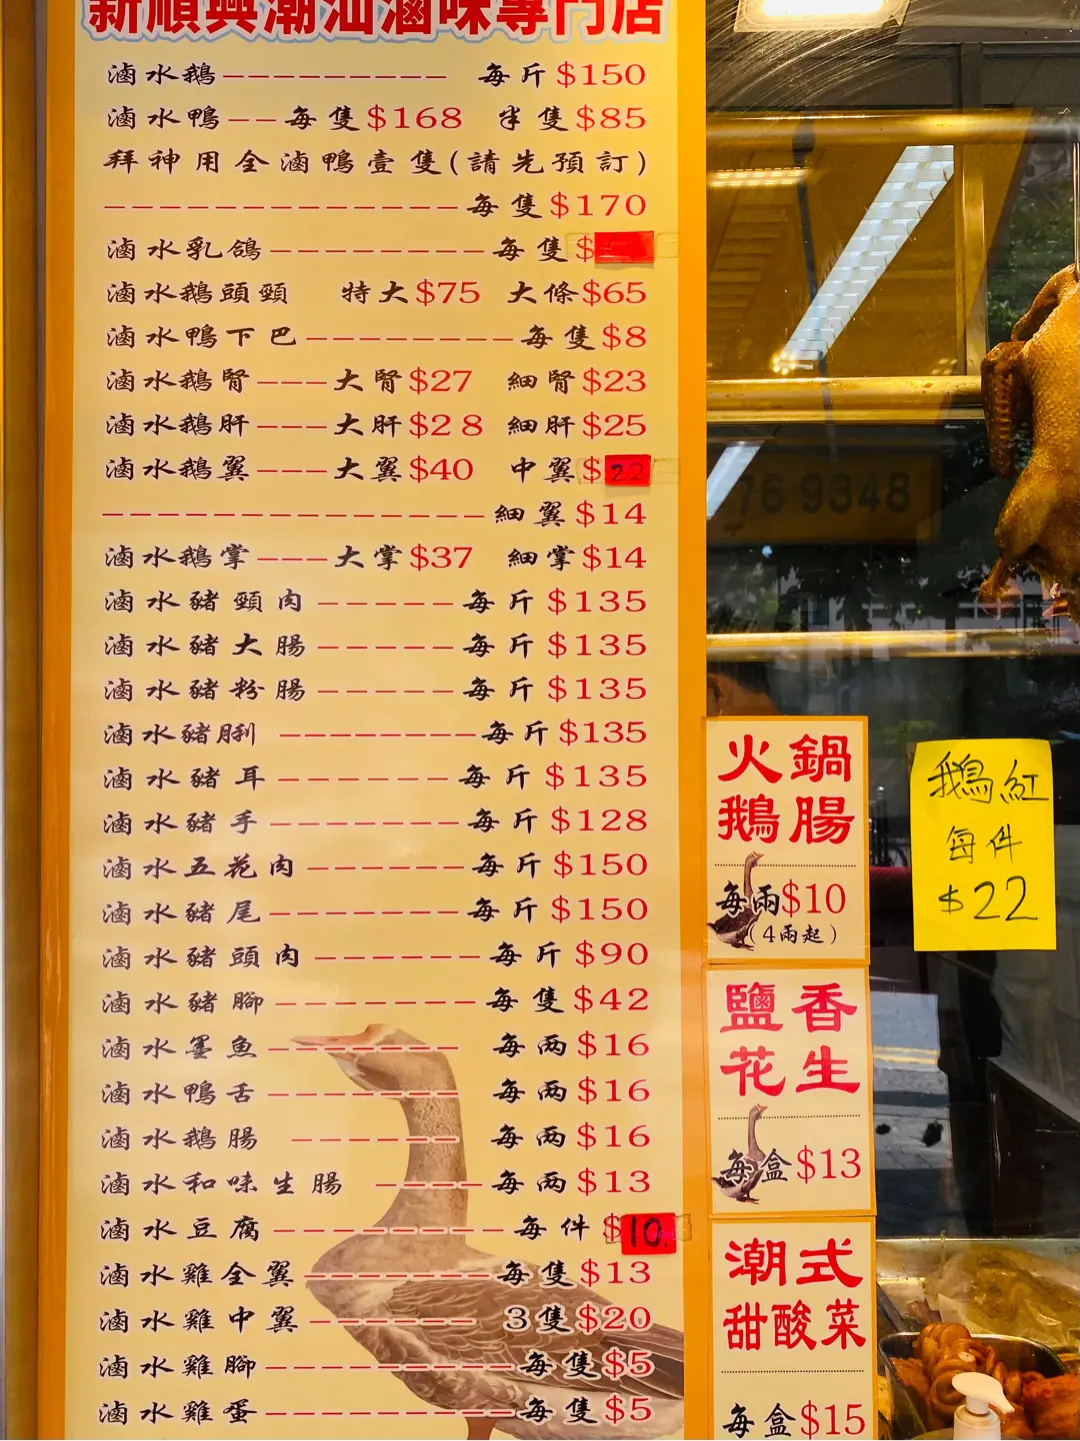 新順興潮汕滷味專門店
滷水鵝--------- 每斤$150
滷水鴨--每隻$168 半隻$85
拜神用全滷鴨壹隻(請先預訂)
---------------每隻$170
滷水乳鴿---------每隻$
滷水鵝頭頸 特大$75 大條$65
滷水鴨下巴---------每隻$8
滷水鵝腎---大腎$27 細腎$23
滷水鵝肝---大肝$28 細肝$25
滷水鵝翼---大翼$40 中翼$22
----------------細翼$14
滷水鵝掌---大掌$37 細掌$14
滷水豬頸肉------每斤$135
滷水豬大腸------每斤$135
滷水豬粉腸-----每斤$135
滷水豬脷 --------每斤$135
滷水豬耳-------每斤$135
滷水豬手--------每斤$128
滷水五花肉------每斤$150
滷水豬尾-------每斤$150
滷水豬頭肉------每斤$90
滷水豬腳--------每隻$42
滷水墨魚-------- 每两$16
滷水鴨舌-------- 每两$16
滷水鵝腸 ------ 每两$16
滷水和味生腸 ----每两$13
滷水豆腐---------每件$10.
滷水雞全翼-------每隻$13
滷水雞中翼------ 3隻$20
滷水雞腳----------每隻$5
滷水雞蛋----------每隻$5
76 9348
火鍋
鵝腸
每兩$10
(4兩起)
鹽香
花生
每盒$13
潮式
甜酸菜
每盒$15
鵝紅
每件
$22